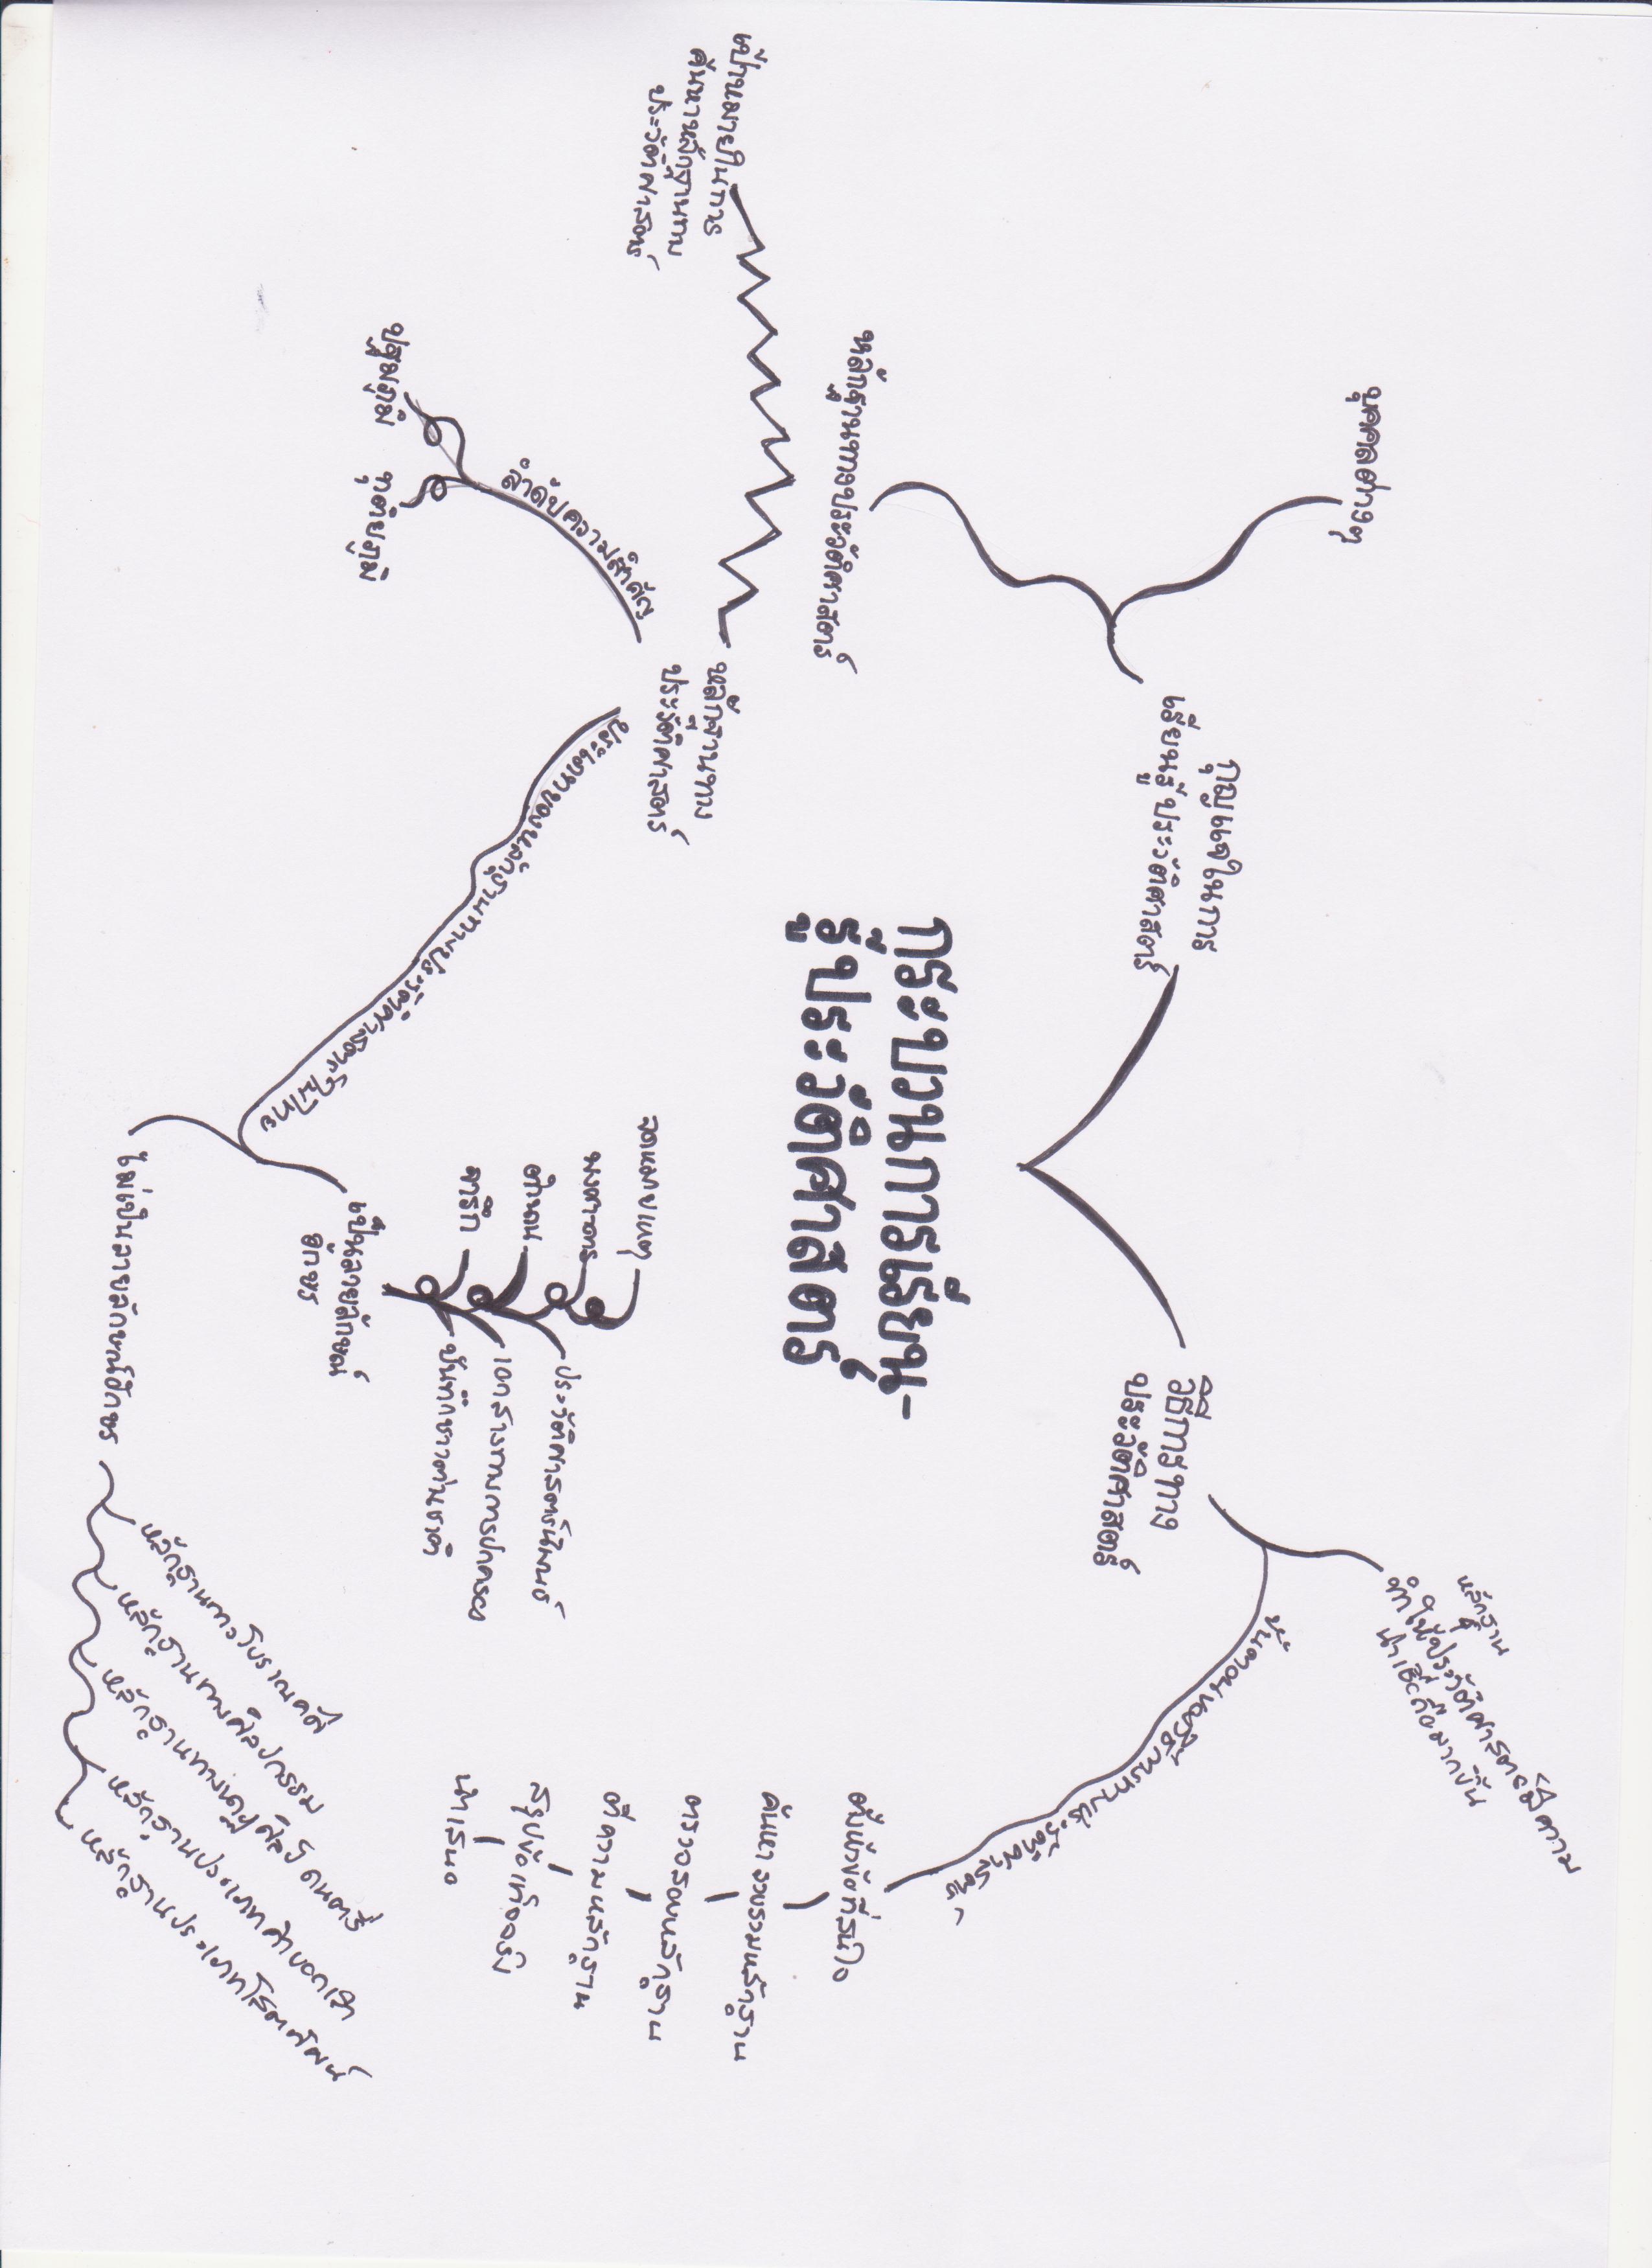 กระบวนการเรียน-
รู้ประวัติศาสตร์
กุญแจในการ
เรียนรู้ประวัติศาสตร์
บุคคลต่างๆ
หลักฐานทางประวัติศาสตร์
วิธีการทาง
ประวัติศาสตร์
หลักฐาน
ทำให้ประวัติศาสตร์มีความ
น่าเชื่อถือมากขึ้น
ขั้นตอนของวิธีการทางประวัติศาสตร์
ตั้งหัวข้อที่สนใจ
ค้นหารวบรวมหลักฐาน
ตรวจสอบหลักฐาน
ตีความหลักฐาน
สรุปข้อเท็จจริง
นำเสนอ
หลักฐานทาง
ประวัติศาสตร์
เป้าหมายในการ
ค้นหาหลักฐานทาง
ประวัติศาสตร์
ลำดับความสำคัญ
ปฐมภูมิ
ทุติยภูมิ
ประเภทของหลักฐานทางประวัติศาสตร์ในไทย
เป็นลายลักษณ์
อักษร
จดหมายเหตุ
พงศาวดาร
ตำนาน
จารึก
ประวัติศาสตร์นิพนธ์
เอกสารทางการปกครอง
บันทึกชาวต่างชาติ
ไม่เป็นลายลักษณ์อักษร
หลักฐานทางโบราณคดี
หลักฐานทางศิลปกรรม
หลักฐานทางนาฏศิลป์ ดนตรี
หลักฐานประเภทคำบอกเล่า
หลักฐานประเภทโสตทัศน์